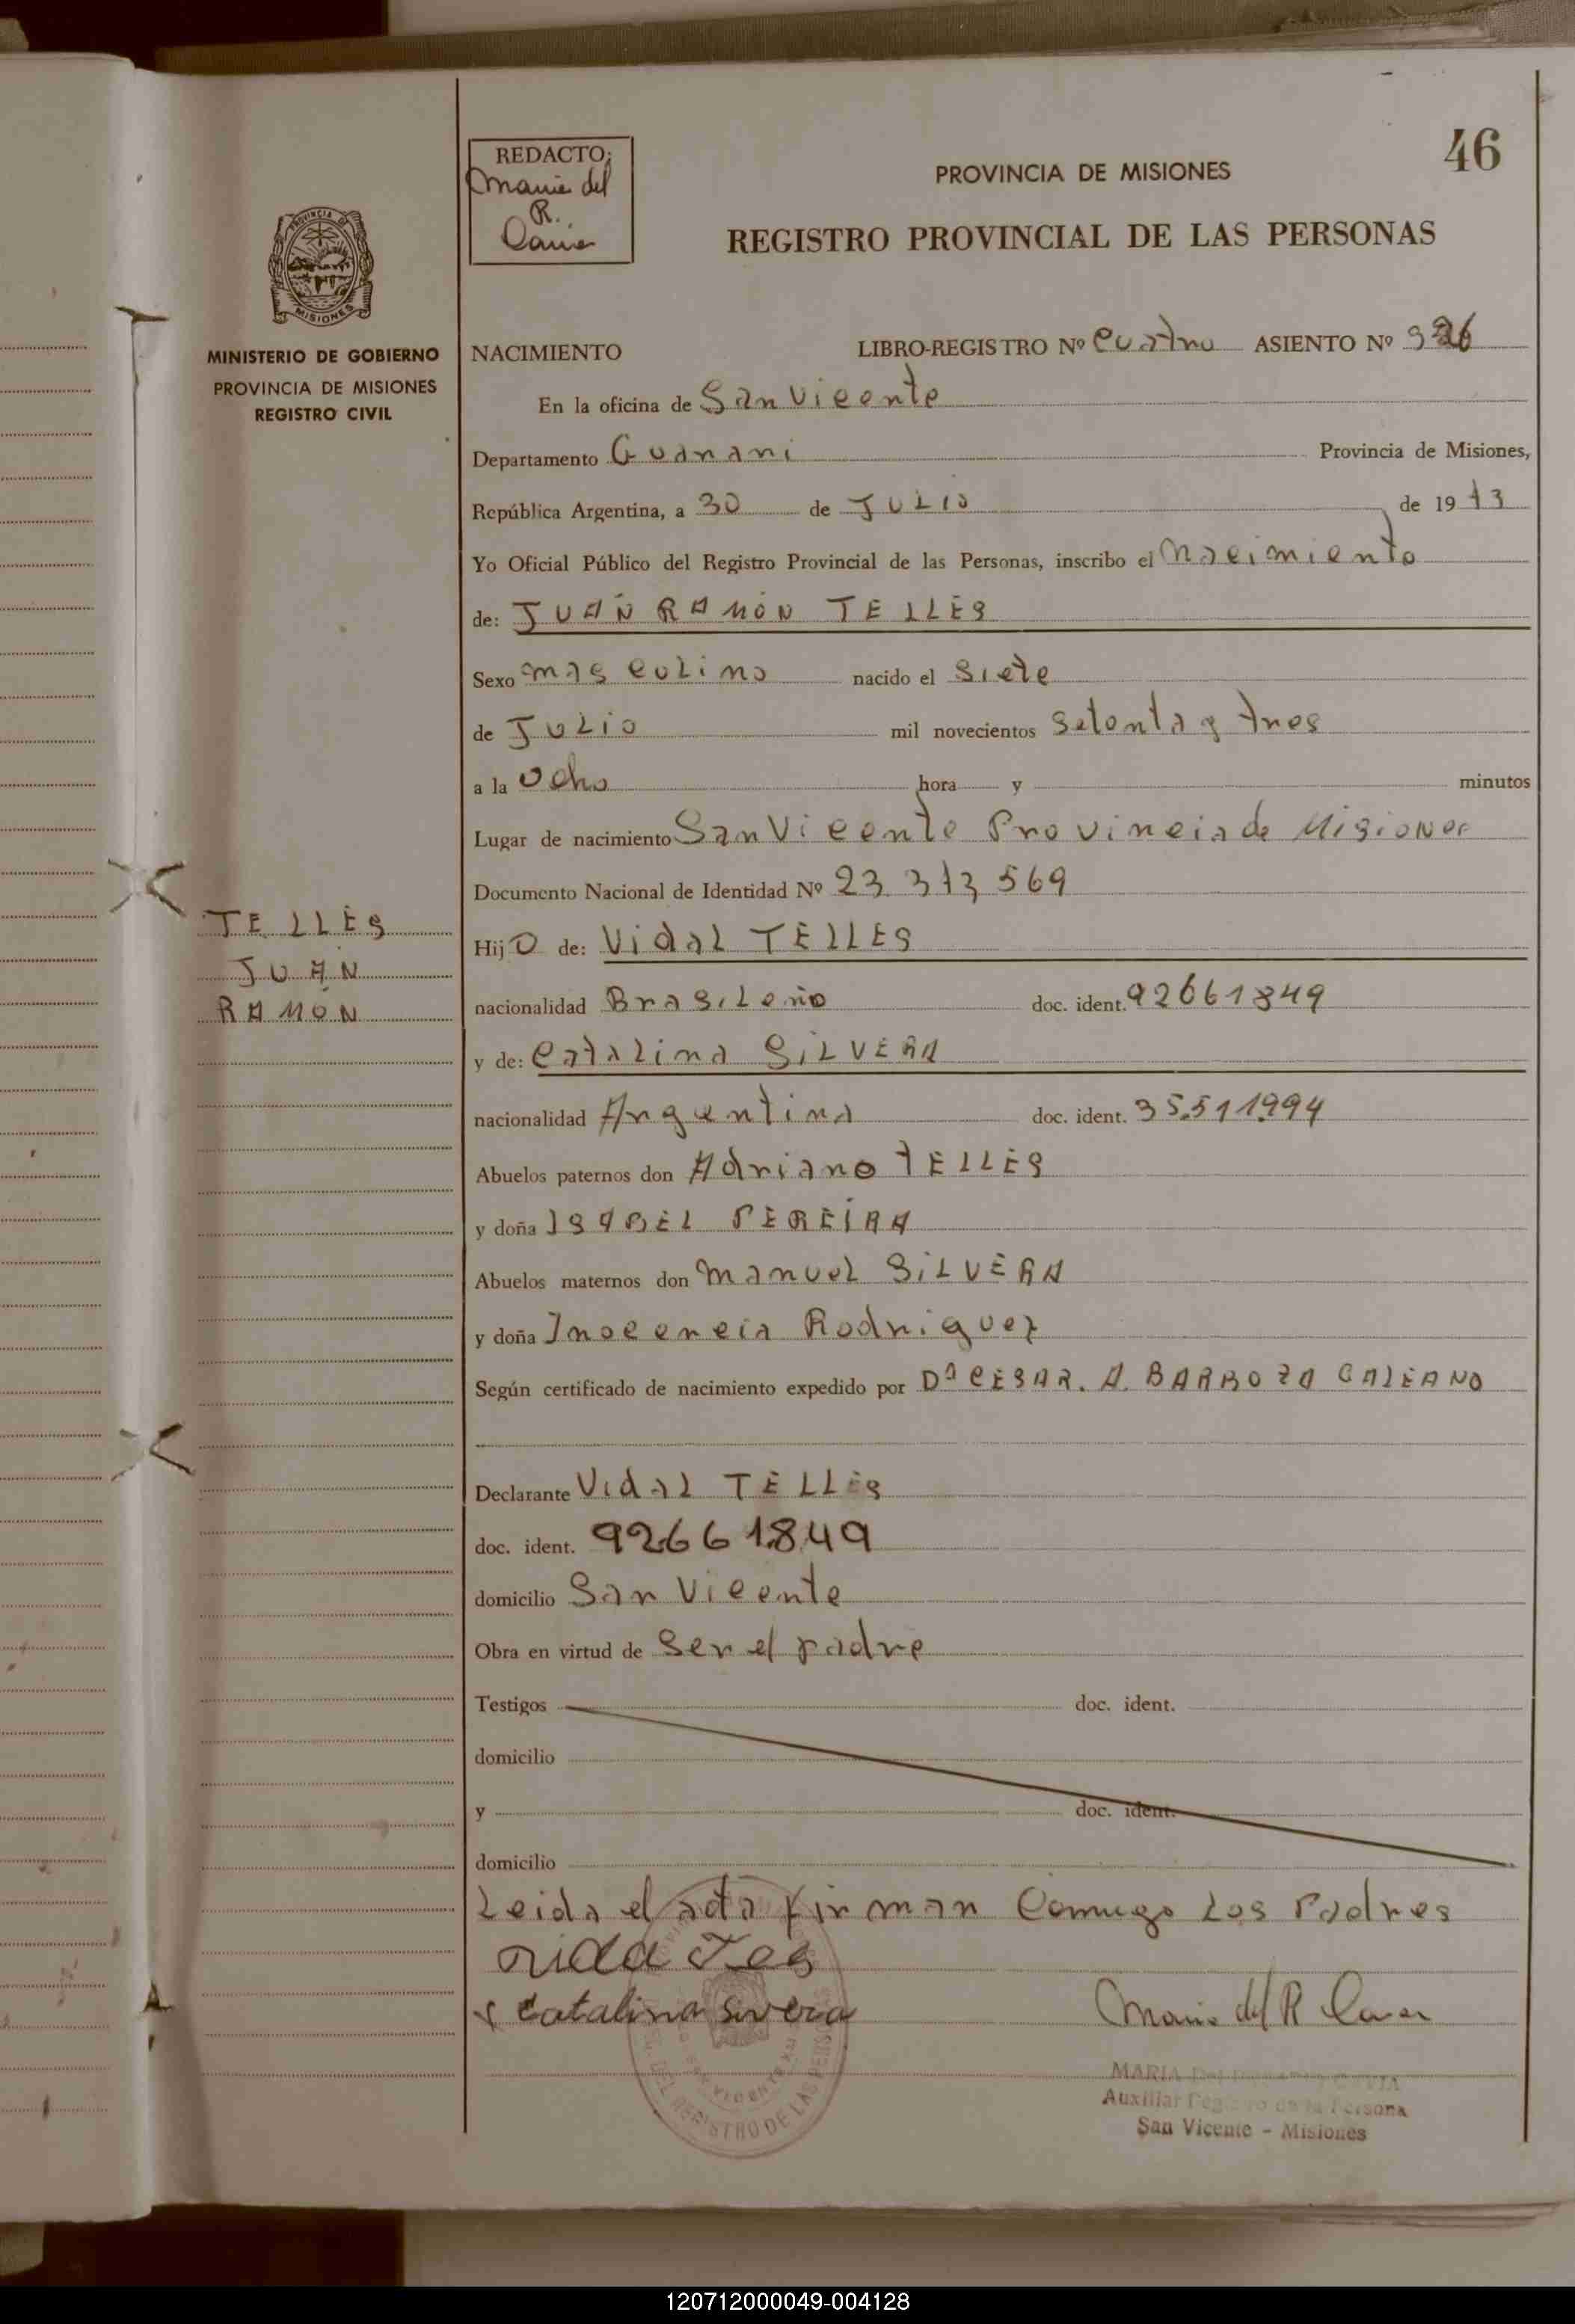 46
REDACTO:
Maria del
R.
PROVINCIA DE MISIONES
REGISTRO PROVINCIAL DE LAS PERSONAS
PROVINCIA DE
MISIONES
MINISTERIO DE GOBIERNO
PROVINCIA DE MISIONES
REGISTRO CIVIL
NACIMIENTO LIBRO-REGISTRO Nº Cuatro ASIENTO Nº
En la oficina de San Vicente
Departamento Guarani Provincia de Misiones,
República Argentina, a 30 de JULIO de 1973
Yo Oficial Público del Registro Provincial de las Personas, inscribo el Nacimiento
de: JUAN RAMON TELLES
Sexo masculino nacido el siete
de Julio mil novecientos setenta y tres
a la ocho hora y minutos
Lugar de nacimiento San Vicente Provincia de Misiones
Documento Nacional de Identidad Nº 23.373.569
Hijo de: Vidal TELLES
nacionalidad Brasileño doc. ident. 92661849
y de: Catalina SILVERA
nacionalidad Argentina doc. ident. 35.511994
Abuelos paternos don Adriano TELLES
y doña ISABEL PEREIRA
Abuelos maternos don Manuel SILVERA
y doña Inocencia Rodriguez
Según certificado de nacimiento expedido por CESAR. A. BARBOZA GALEANO
Declarante Vidal TELLES
doc. ident. 92661849
domicilio San Vicente
Obra en virtud de ser el padre
Testigos doc. ident.
domicilio
y doc. ident.
domicilio
Leida el acta firman Comigo Los Padres
Catalina Sivera Maria del R
MARIA
Auxiliar Persona
San Vicente - Misiones
REGISTRO DE LAS PERSONAS
TELLES
JUAN
RAMON
120712000049-004128